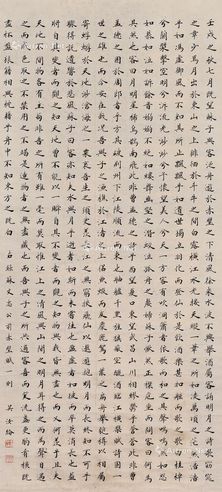 壬戌之秋七月既望蘇子與客泛舟遊於赤壁之下清風徐來水波不興舉酒屬客誦明月之詩歌窈窕
之章少焉月出於東山之上徘徊於斗牛之間白露橫江水光接天縱一葦之所如凌萬頃之茫然浩浩
乎如馮虛御風而不知其所止飄飄乎如遺世獨立羽化而登仙於是飲酒樂甚扣舷而歌之歌曰桂棹
兮蘭槳擊空明兮泝流光渺渺兮予懷望美人兮天一方客有吹洞簫者倚歌而和之其聲嗚嗚然如怨
如慕如泣如訴餘音嫋嫋不絕如縷舞幽壑之潛蛟泣孤舟之嫠婦蘇子愀然正襟危坐而問客曰何為
其然也客曰月明星稀烏鵲南飛此非曹孟德之詩乎西望夏口東望武昌山川相繆鬱乎蒼蒼此非曹
孟德之困於周郎者乎方其破荊州下江陵順流而東也舳艫千里旌旗蔽空釃酒臨江橫槊賦詩固一
世之雄也而今安在哉況吾與子漁樵於江渚之上侶魚蝦而友麋鹿駕一葉之扁舟舉匏樽以相屬
寄蜉蝣於天地渺滄海之一粟哀吾生之須臾羨長江之無窮挾飛仙以遨遊抱明月而長終知不可乎
驟得託遺響於悲風蘇子曰客亦知夫水與月乎逝者如斯而未嘗往也盈虛者如彼而卒莫消長也蓋
將自其變者而觀之則天地曾不能以一瞬自其不變者而觀之則物與我皆無盡也而又何羨乎且夫
天地之間物各有主苟非吾之所有雖一毫而莫取惟江上之清風與山間之明月耳得之而為聲目遇
之而成色取之無禁用之不竭是造物者之無盡藏也而吾與子之所共適客喜而笑洗盞更酌肴核既
盡杯盤狼籍相與枕藉乎舟中不知東方之既白
右錄蘇文忠公前赤壁賦一則 吳汝綸